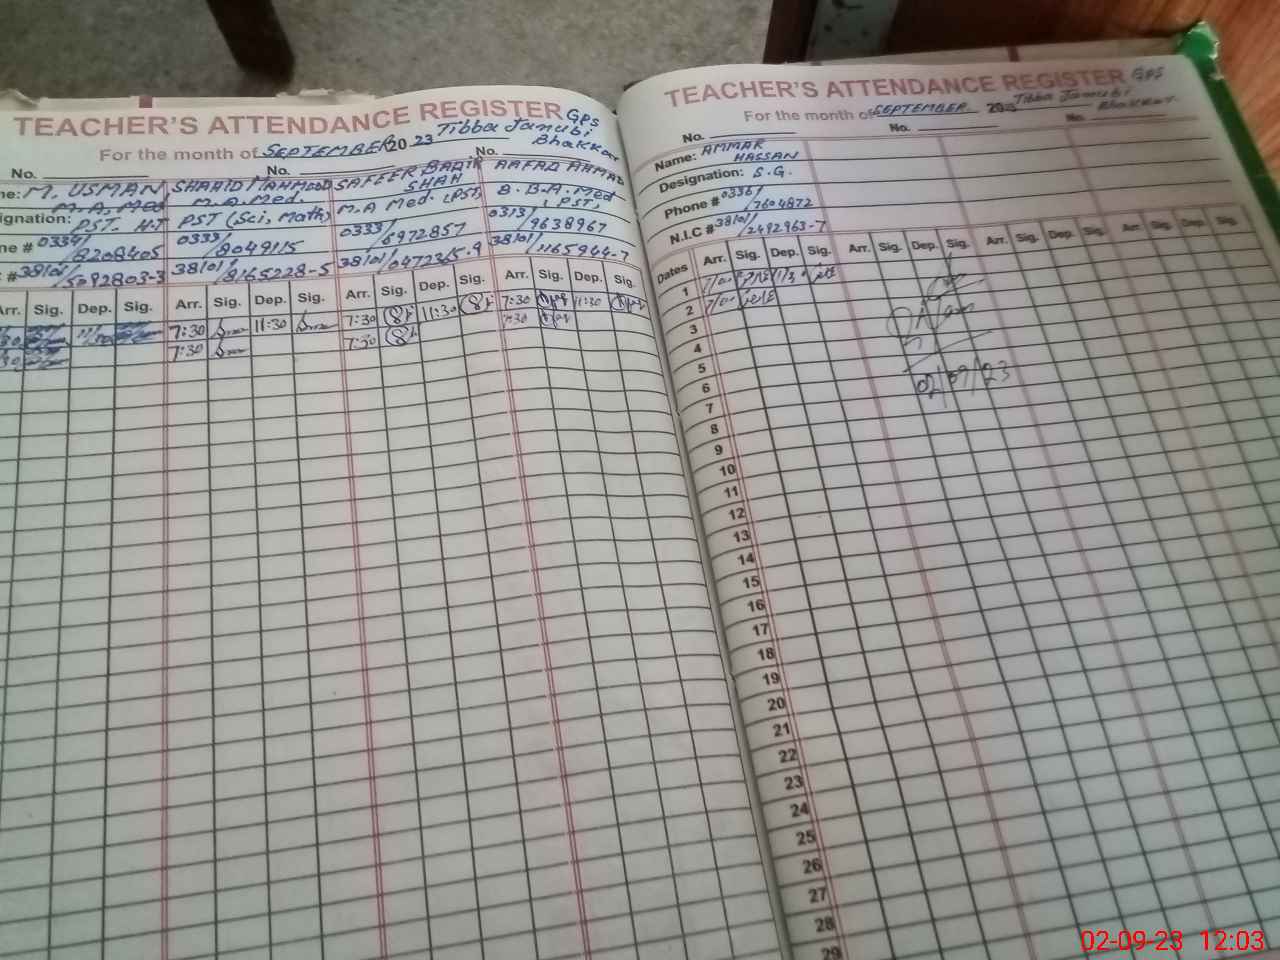 TEACHER'S ATTENDANCE REGISTER GPS
For the month of SEPTEMBER 2023 Tibba Janubi
Bhakkar
No. No. No.
me: M. USMAN SHAHID MAHMOOD SAFEER BADIR SHAH AAFAQ AHMAD
M.A, Med M.A. Med. M.A Med. (PST) B.B.A. Med
signation: PST. H.T PST (Sci, Math) PST,
ne # 0334/8208405 0333/8049115 0333/6972857 0313/9638967
# 38101/5092803-3 38101/8165228-5 38101/0472365-9 38101/1165944-7
Arr. Sig. Dep. Sig. Arr. Sig. Dep. Sig. Arr. Sig. Dep. Sig. Arr. Sig. Dep. Sig.
30 7:30 11:30 7:30 11:30 7:30 11:30
30 7:30 7:30 7:30
TEACHER'S ATTENDANCE REGISTER GPS
For the month of SEPTEMBER 20 Tibba Janubi
Bhakkar
No. No. No.
Name: AMMAR
HASSAN
Designation: S.G.
Phone # 0336/
7604872
N.I.C # 38101/
2492963-7
Dates Arr. Sig. Dep. Sig. Arr. Sig. Dep. Sig. Arr. Sig. Dep. Sig. Arr. Sig. Dep. Sig.
1
2
3
4
5
6
02/09/23
7
8
9
10
11
12
13
14
15
16
17
18
19
20
21
22
23
24
25
26
27
28
29
02-09-23 12:03